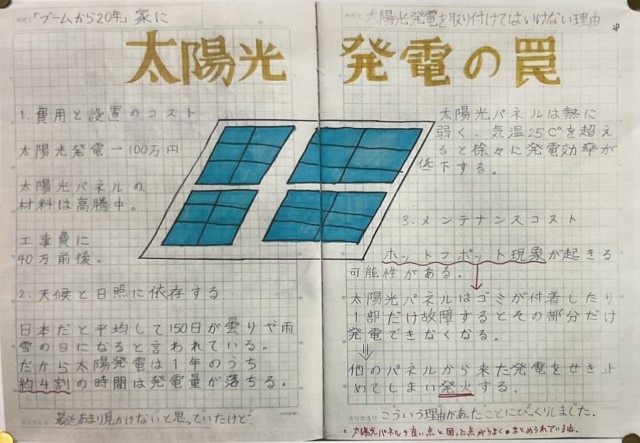 「ブームから20年」家に
太陽光発電を取り付けてはいけない理由
太陽光 発電の罠
1. 費用と設置のコスト
太陽光発電→100万円
太陽光パネルの
材料は高騰中。
工事費に
40万前後。
2. 天候と日照に依存する
日本だと平均して150日が曇りや雨
雪の日になると言われている。
だから太陽発電は1年のうち
約4割の時間は発電量が落ちる。
最近あまり見かけないと思っていたけど
太陽光パネルは熱に
弱く、気温25C°を超え
ると徐々に発電効率が
低下する。
3. メンテナンスコスト
ホットスポット現象が起きる
可能性がある。
↓
太陽光パネルはゴミが付着したり
1部だけ故障するとその部分だけ
発電できなくなる。
⇓
他のパネルから来た発電をせき止
めてしまい発火する。
ふりかえり
こういう理由があったことにびっくりしました。
太陽光パネルの良い点と困った点がうまくまとめられているね。